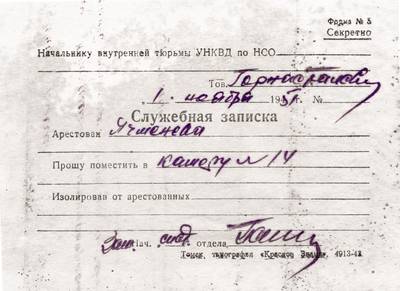 Форма № 5
Секретно
Начальнику внутренней тюрьмы УНКВД по НСО
Тов.
1 ноября 195 г. №
Служебная записка
Арестован
Прошу поместить в камеру № 14
Изолировав от арестованных
Зам. Нач. отдела
Томск, типография «Красное Знамя»